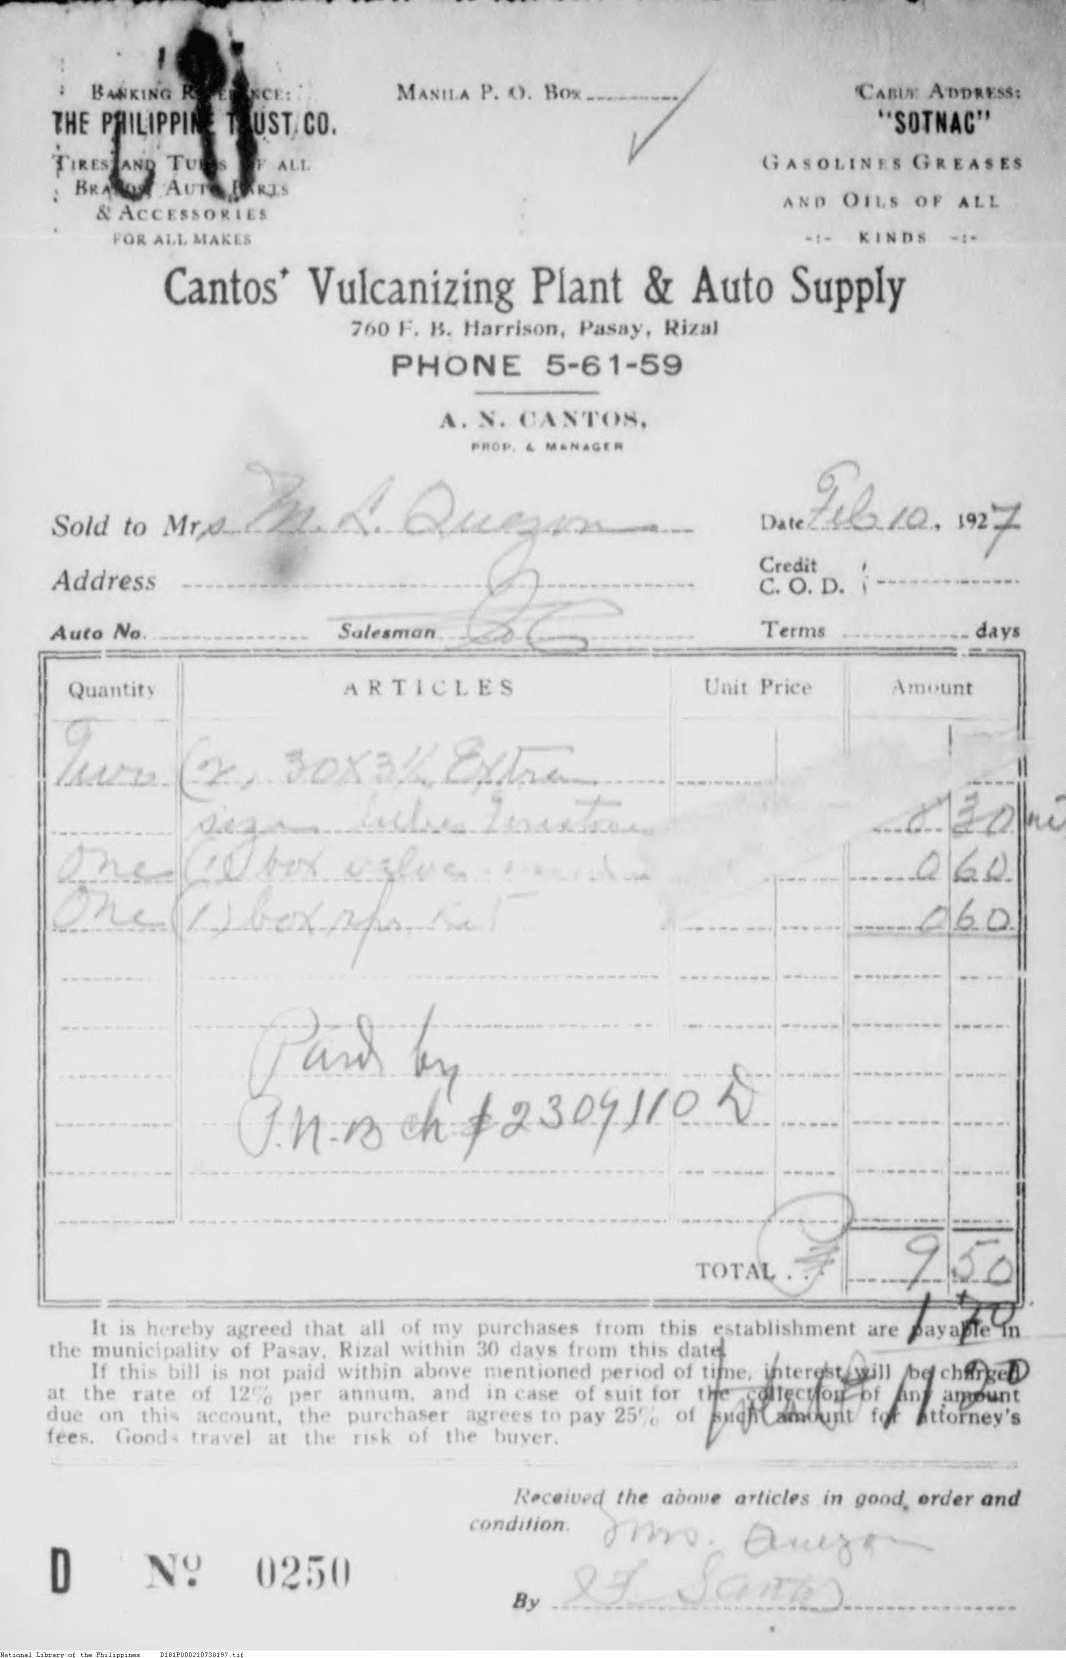 BANKING REFERENCE:
THE PHILIPPINE TRUST CO.
TIRES AND TUBES OF ALL
BRANDS, AUTO PARTS
& ACCESSORIES
FOR ALL MAKES
MANILA P. O. BOX
CABLE ADDRESS:
"SOTNAC"
GASOLINES GREASES
AND OILS OF ALL
-:- KINDS -:-
Cantos' Vulcanizing Plant & Auto Supply
760 F. B. Harrison, Pasay, Rizal
PHONE 5-61-59
A. N. CANTOS,
PROP. & MANAGER
Sold to Mrs M. L. Quezon
Date Feb 10, 1927
Address
Credit
C. O. D.
Auto No. Salesman
Terms days
Quantity ARTICLES Unit Price Amount
Two (2) 30x3½ Extra
size tubes 8 30
One (1) box valve 0 60
One (1) box rpr. Kit 0 60
Paid by
P.N.B ch # 2309110 D
TOTAL . . ₱ 9 50
1 70
It is hereby agreed that all of my purchases from this establishment are payable in
the municipality of Pasay, Rizal within 30 days from this date.
If this bill is not paid within above mentioned period of time, interest will be charged
at the rate of 12% per annum, and in case of suit for the collection of any amount
due on this account, the purchaser agrees to pay 25% of such amount for attorney's
fees. Goods travel at the risk of the buyer.
11.20
Received the above articles in good order and
condition.
Mrs. Quezon
D No 0250
By
National Library of the Philippines D181P000210738197.tif